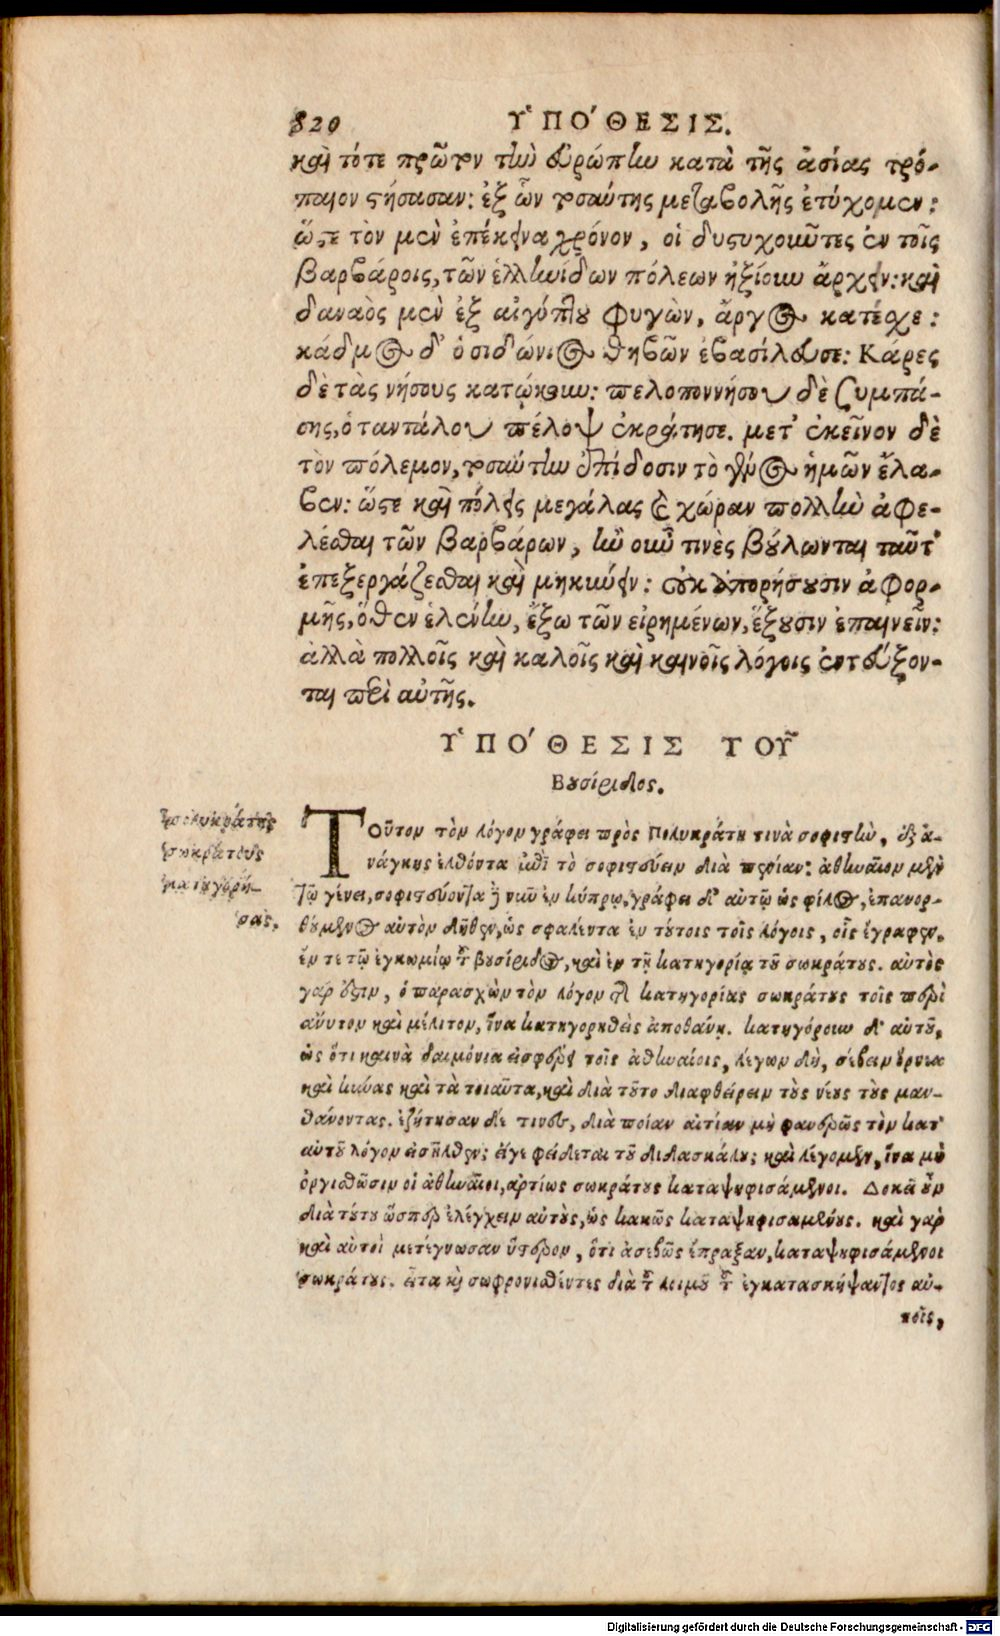 820 ΥΠΟ΄ΘΕΣΙΣ.
καὶ τότε πρῶτον τὴν εὐρώπην κατὰ τῆς ἀσίας τρό-
παιον στήσασαν: ἐξ ὧν τοσαύτης μεταβολῆς ἐτύχομεν:
ὥστε τὸν μὲν ἐπέκεινα χρόνον, οἱ δυστυχοῦντες ἐν τοῖς
βαρβάροις, τῶν ἑλληνίδων πόλεων ἠξίουν ἄρχειν: καὶ
δαναὸς μὲν ἐξ αἰγύπτου φυγὼν, ἄργος κατέσχε:
κάδμος δ' ὁ σιδώνιος θηβῶν ἐβασίλευσε: Κάρες
δὲ τὰς νήσους κατῴκουν: πελοποννήσου δὲ ζυμπά-
σης, ὁ ταντάλου πέλοψ ἐκράτησε. μετ' ἐκεῖνον δὲ
τὸν πόλεμον, τοσαύτην ἐπίδοσιν τὸ γένος ἡμῶν ἔλα-
βεν: ὥστε καὶ πόλεις μεγάλας καὶ χώραν πολλὴν ἀφε-
λέσθαι τῶν βαρβάρων, ἢν οὖν τινὲς βούλωνται ταῦτ'
ἐπεξεργάζεσθαι καὶ μηκύνειν: οὐκ ἀπορήσουσιν ἀφορ-
μῆς, ὅθεν ἑλένην, ἔξω τῶν εἰρημένων, ἕξουσιν ἐπαινεῖν:
ἀλλὰ πολλοῖς καὶ καλοῖς καὶ καινοῖς λόγοις ἐντεύξον-
ται περὶ αὐτῆς.
ΥΠΟ΄ΘΕΣΙΣ ΤΟΥ͂
Βουσίριδος.
Τοῦτον τὸν λόγον γράφει πρὸς Πολυκράτη τινὰ σοφιστὴν, ἐξ ἀ-
νάγκης ἐλθόντα ἐπὶ τὸ σοφιστεύειν διὰ πενίαν: ἀθηναῖον μὲν
τῷ γένει, σοφιστεύοντα δὲ νῦν ἐν κύπρῳ, γράφει δ' αὐτῷ ὡς φίλος, ἐπανορ-
θούμενος αὐτὸν δῆθεν, ὡς σφαλέντα ἐν τούτοις τοῖς λόγοις, οἷς ἔγραφεν.
ἔν τε τῷ ἐγκωμίῳ τοῦ βουσίριδος, καὶ ἐν τῇ κατηγορίᾳ τοῦ σωκράτους. αὐτὸς
γάρ ἐστιν, ὁ παρασχὼν τὸν λόγον τῆς κατηγορίας σωκράτους τοῖς περὶ
ἄνυτον καὶ μέλιτον, ἵνα κατηγορηθεὶς ἀποθάνῃ. κατηγόρουν δ' αὐτοῦ,
ὡς ὅτι καινὰ δαιμόνια εἰσφέρει τοῖς ἀθηναίοις, λέγων δὴ, σέβειν ὄρνεα
καὶ κύνας καὶ τὰ τοιαῦτα, καὶ διὰ τοῦτο διαφθείρειν τοὺς νέους τοὺς μαν-
θάνοντας. ἐζήτησαν δὲ τινες, διὰ ποίαν αἰτίαν μὴ φανερῶς τὸν κατ'
αὐτοῦ λόγον εἰσῆλθεν; εἴγε φείδεται τοῦ διδασκάλου; καὶ λέγομεν, ἵνα μὴ
ὀργισθῶσιν οἱ ἀθηναῖοι, ἀρτίως σωκράτους καταψηφισάμενοι. Δοκεῖ οὖν
διὰ τούτου ὥσπερ ἐλέγχειν αὐτοὺς, ὡς κακῶς καταψηφισαμένους. καὶ γὰρ
καὶ αὐτοὶ μετέγνωσαν ὕστερον, ὅτι ἀσεβῶς ἔπραξαν, καταψηφισάμενοι
σωκράτους. εἶτα καὶ σωφρονισθέντες διὰ τοῦ λοιμοῦ τοῦ ἐγκατασκήψαντος αὐ-
τοῖς,
πολυκράτης
σωκράτους
κατηγορή-
σας.
Digitalisierung gefördert durch die Deutsche Forschungsgemeinschaft - DFG